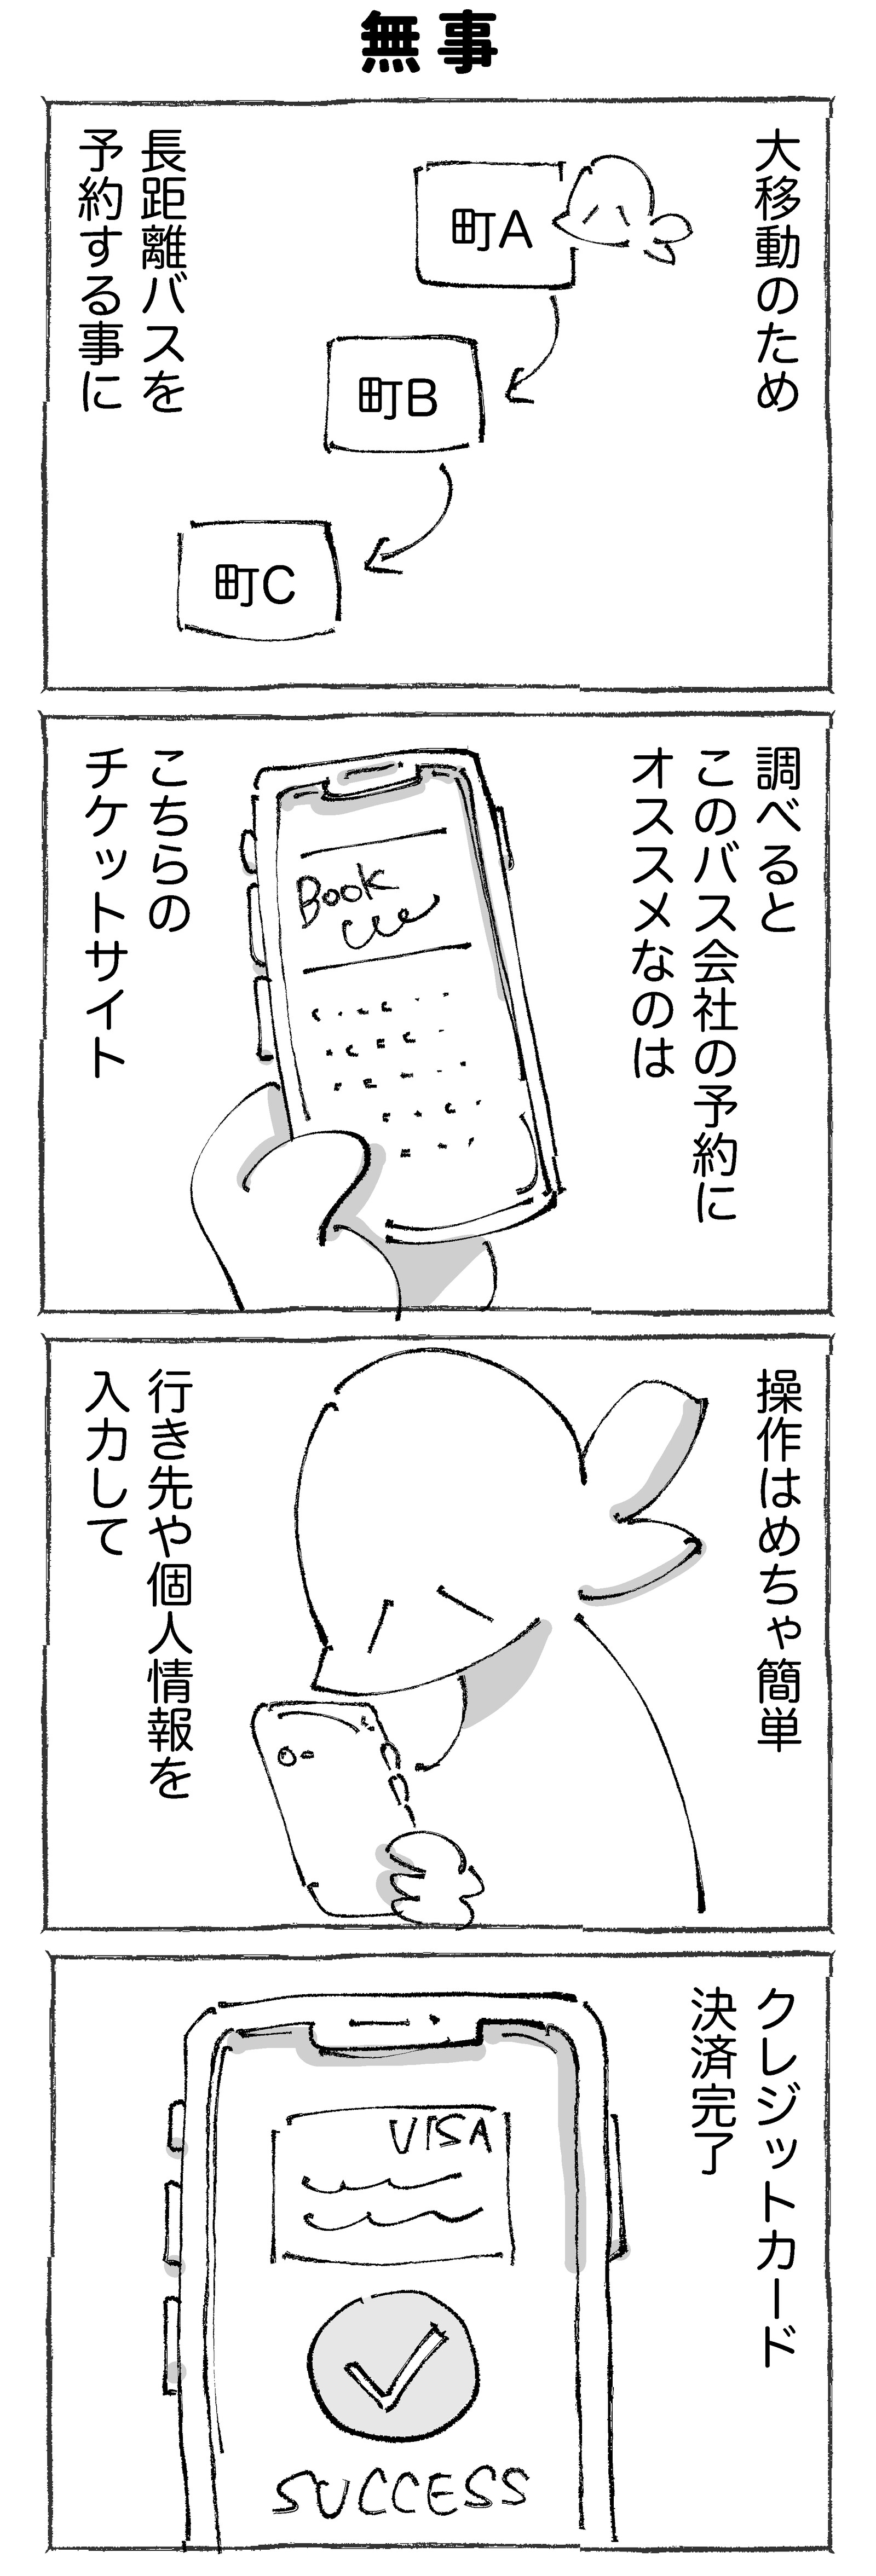 無事
大移動のため
町A
町B
町C
長距離バスを
予約する事に
調べると
このバス会社の予約に
オススメなのは
Book
こちらの
チケットサイト
操作はめちゃ簡単
行き先や個人情報を
入力して
クレジットカード
決済完了
VISA
SUCCESS